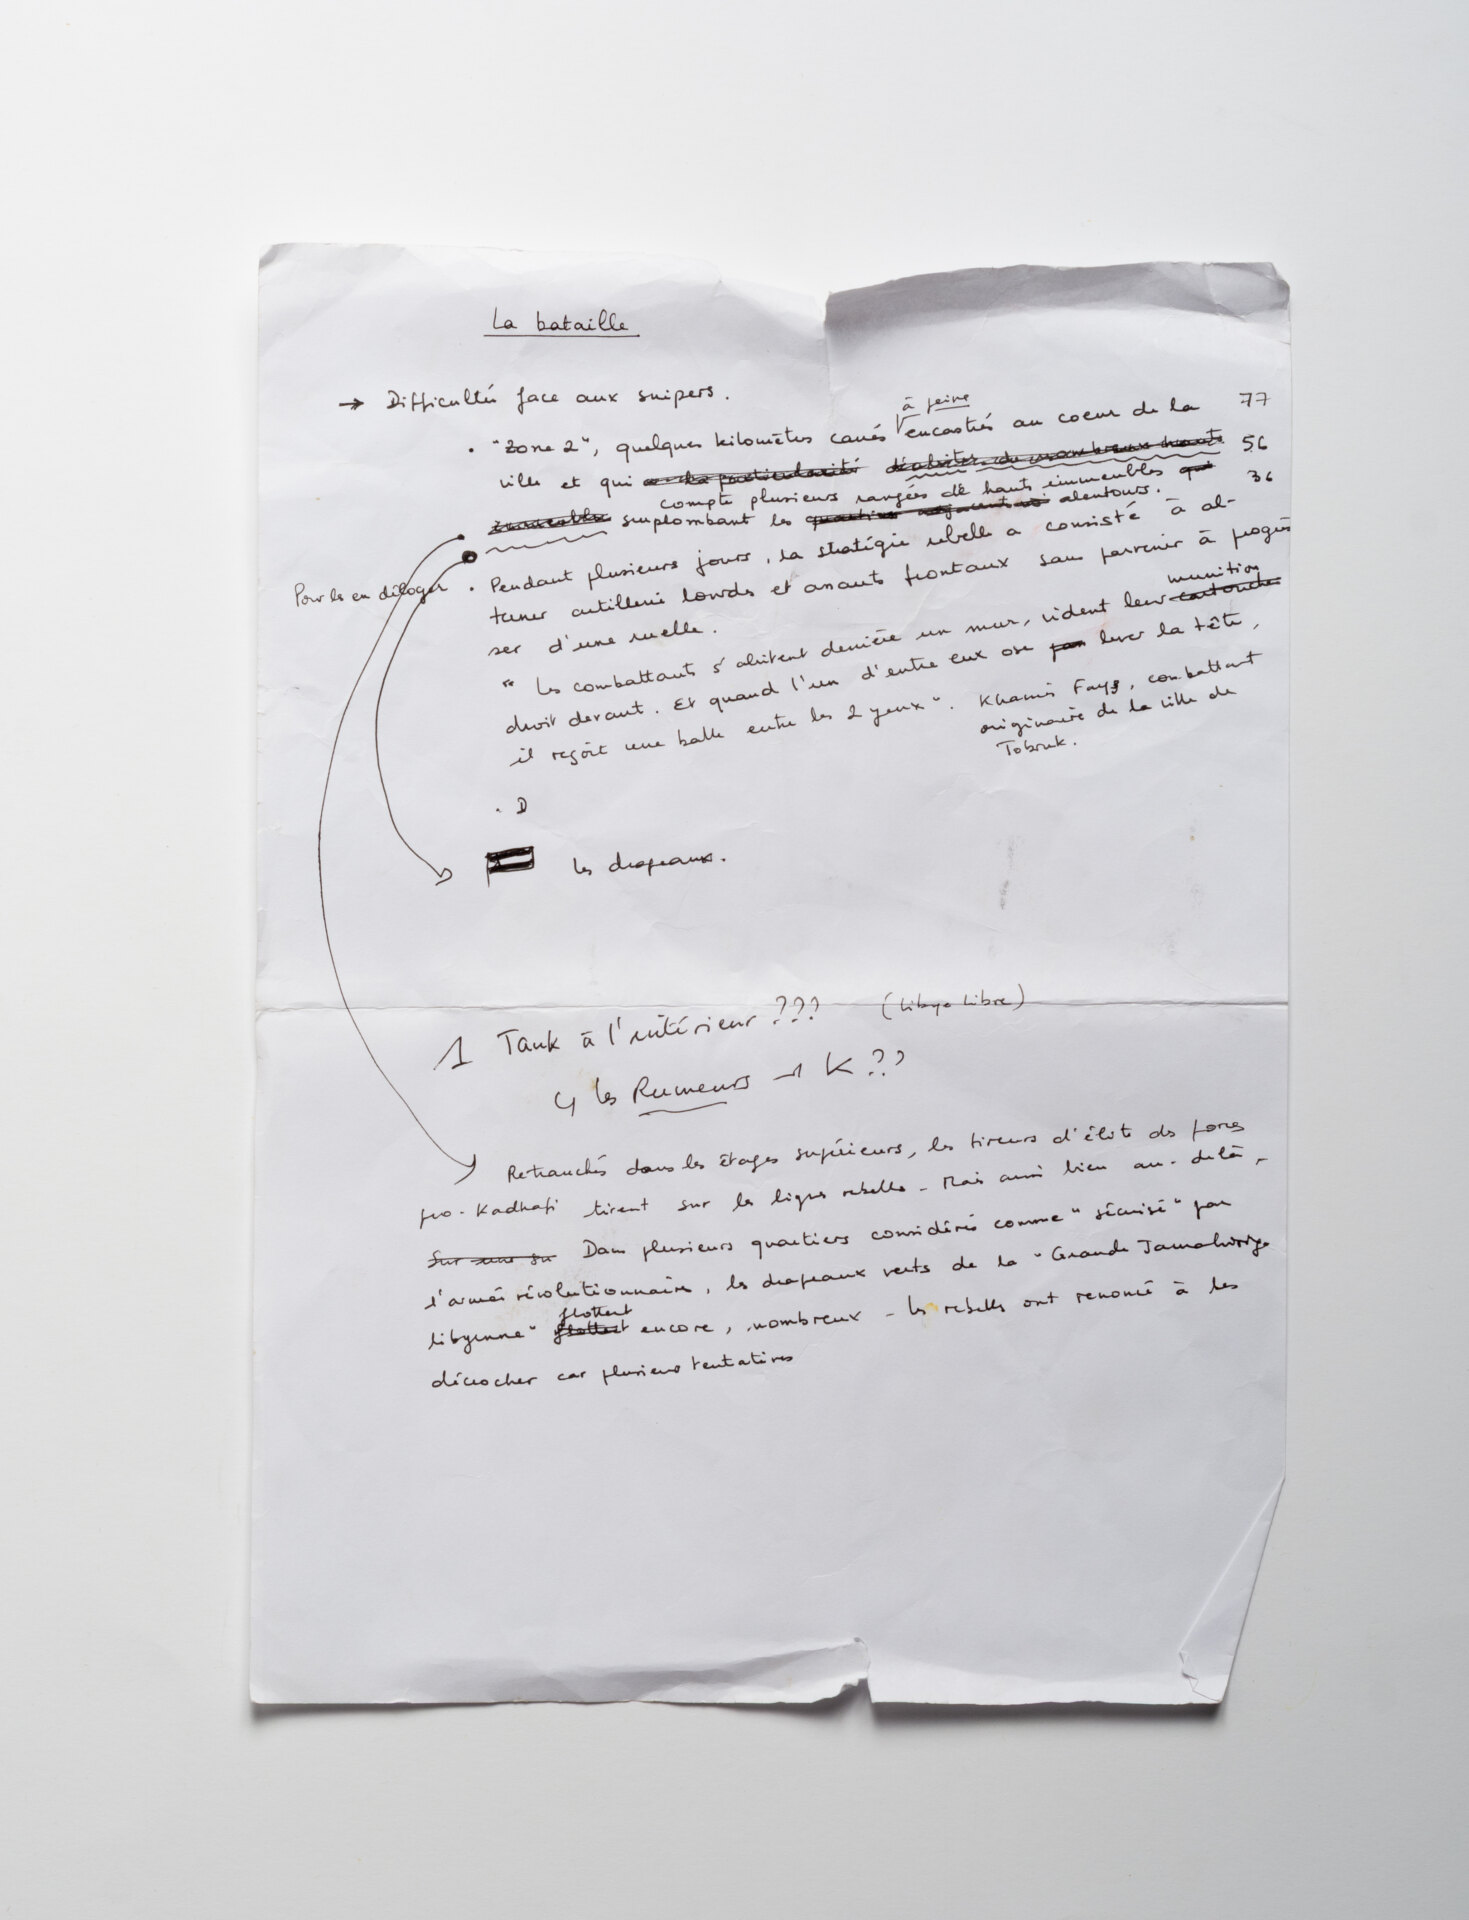 La bataille
→ Difficultés face aux snipers.
à peine
• "Zone 2", quelques kilomètres carrés encastrés au coeur de la 77
ville et qui a la particularité d'abriter de nombreux hauts 56
compte plusieurs rangées de hauts immeubles qui 36
immeubles surplombant les quartiers adjacents alentours.
Pour les en déloger • Pendant plusieurs jours, la stratégie rebelle a consisté à al-
terner artillerie lourde et assauts frontaux sans parvenir à progres
ser d'une ruelle.
munition
" Les combattants s'abritent derrière un mur, vident leur cartouche
droit devant. Et quand l'un d'entre eux ose lever la tête,
il reçoit une balle entre les 2 yeux". Khamis Fays, combattant
originaire de la ville de
Tobruk.
. D
les drapeaux.
1 Tank à l'intérieur ??? (Libye Libre)
↳ les Rumeurs → K ??
Retranchés dans les étages supérieurs, les tireurs d'élite des forces
pro-Kadhafi tirent sur les lignes rebelles - Mais aussi bien au-delà -
Sur une su Dans plusieurs quartiers considérés comme "sécurisé" par
l'armée révolutionnaire, les drapeaux verts de la "Grande Jamahiriya
flottent
libyenne" flottent encore, nombreux - les rebelles ont renoncé à les
décrocher car plusieurs tentatives